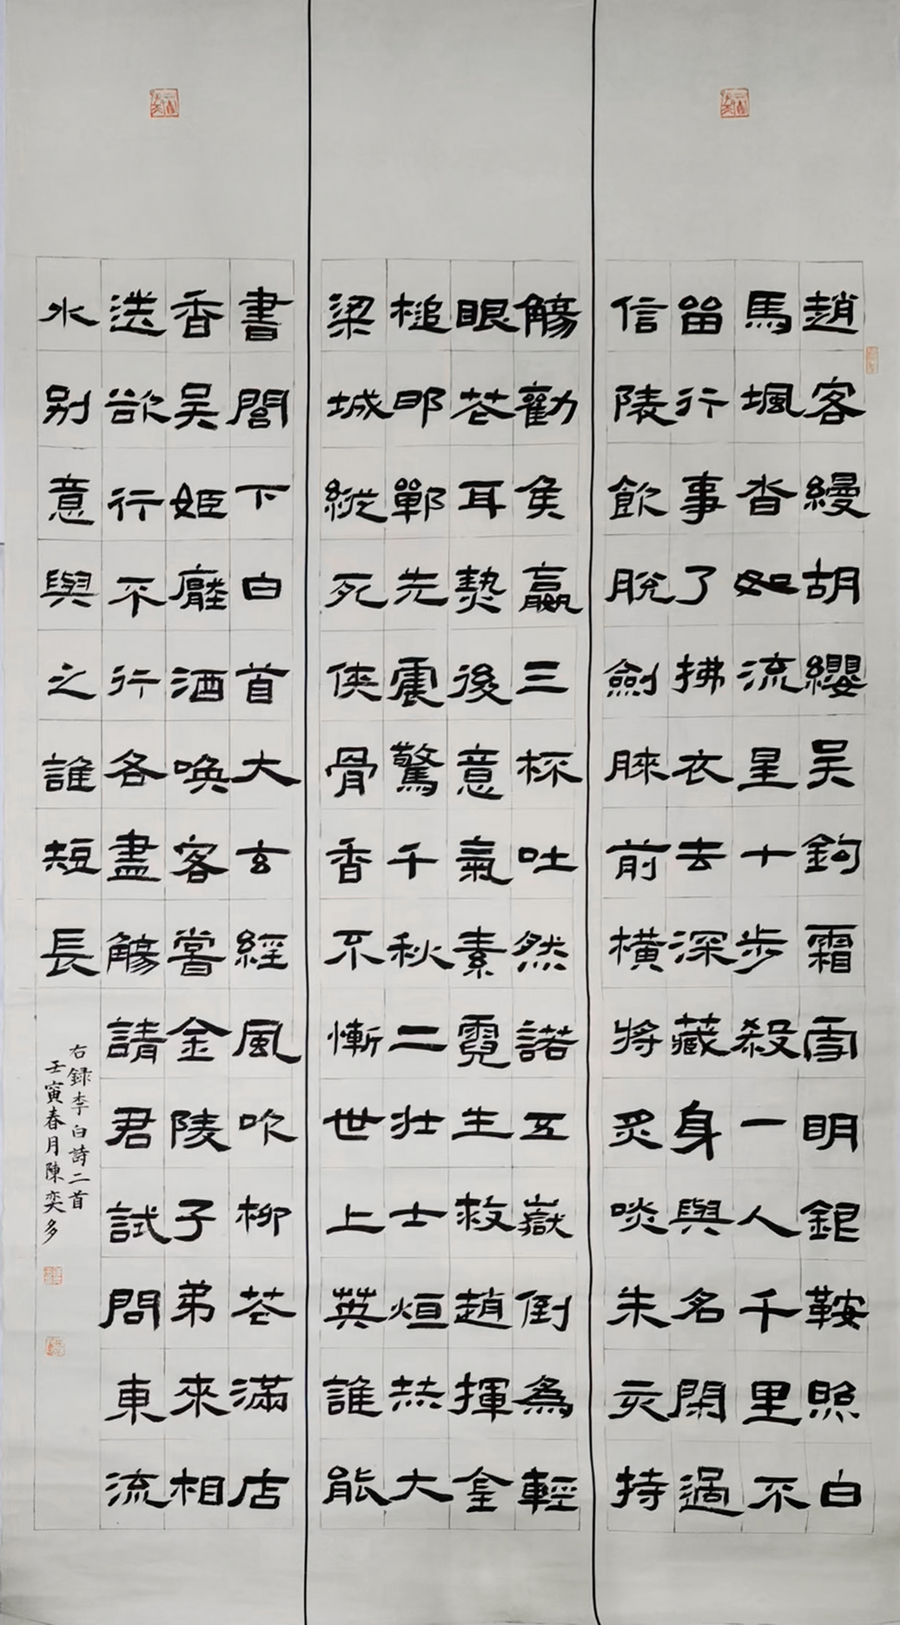 趙客縵胡纓吳鉤霜雪明銀鞍照白
馬颯沓如流星十步殺一人千里不
留行事了拂衣去深藏身與名閑過
信陵飲脫劍膝前橫將炙啖朱亥持
觴勸侯嬴三杯吐然諾五嶽倒為輕
眼花耳熱後意氣素霓生救趙揮金
槌邯鄲先震驚千秋二壯士烜赫大
梁城縱死俠骨香不慚世上英誰能
書閣下白首大玄經風吹柳花滿店
香吳姬壓酒喚客嘗金陵子弟來相
送欲行不行各盡觴請君試問東流
水別意與之誰短長
右録李白詩二首
壬寅春月陳奕多